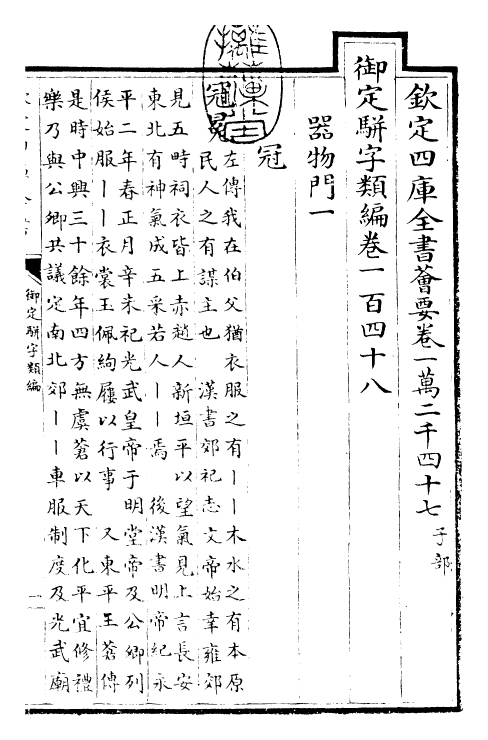 欽定四庫全書薈要卷一萬二千四十七 子部
御定駢字類編卷一百四十八
器物門一
冠
冠冕
左傳我在伯父猶衣服之有丨丨木水之有本原
民人之有謀主也 漢書郊祀志文帝始幸雍郊
見五時祠衣皆上赤趙人新垣平以望氣見上言長安
東北有神氣成五采若人丨丨焉 後漢書明帝紀永
平二年春正月辛未祀光武皇帝于明堂帝及公卿列
侯始服丨丨衣裳玉佩絇屨以行事 又東平王蒼傳
是時中興三十餘年四方無虞蒼以天下化平宜修禮
樂乃與公卿共議定南北郊丨丨車服制度及光武廟
御定駢字類編
一